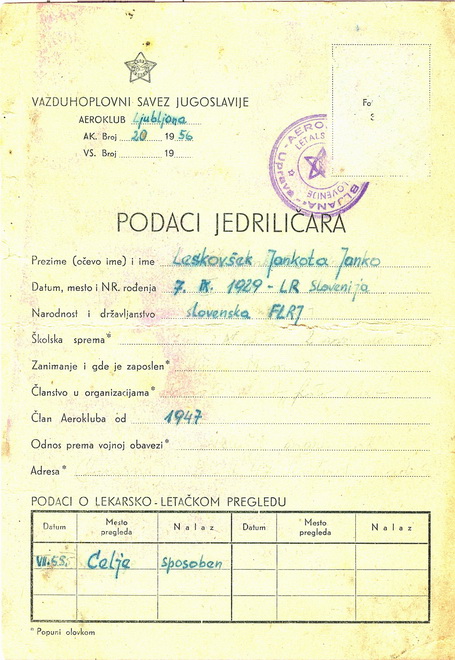 VAZDUHOPLOVNI SAVEZ JUGOSLAVIJE
AEROKLUB Ljubljana
AK. Broj 20 1956
VS. Broj 19
PODACI JEDRILIČARA
Prezime (očevo ime) i ime Leskovšek Jankota Janko
Datum, mesto i NR. rođenja 7. IX. 1929 - LR Slovenija
Narodnost i državljanstvo slovenska FLRJ
Školska sprema*
Zanimanje i gde je zaposlen*
Članstvo u organizacijama*
Član Aerokluba od 1947
Odnos prema vojnoj obavezi*
Adresa*
PODACI O LEKARSKO-LETAČKOM PREGLEDU
Datum Mesto pregleda Nalaz Datum Mesto pregleda Nalaz
VII.55. Celje sposoben
* Popuni olovkom